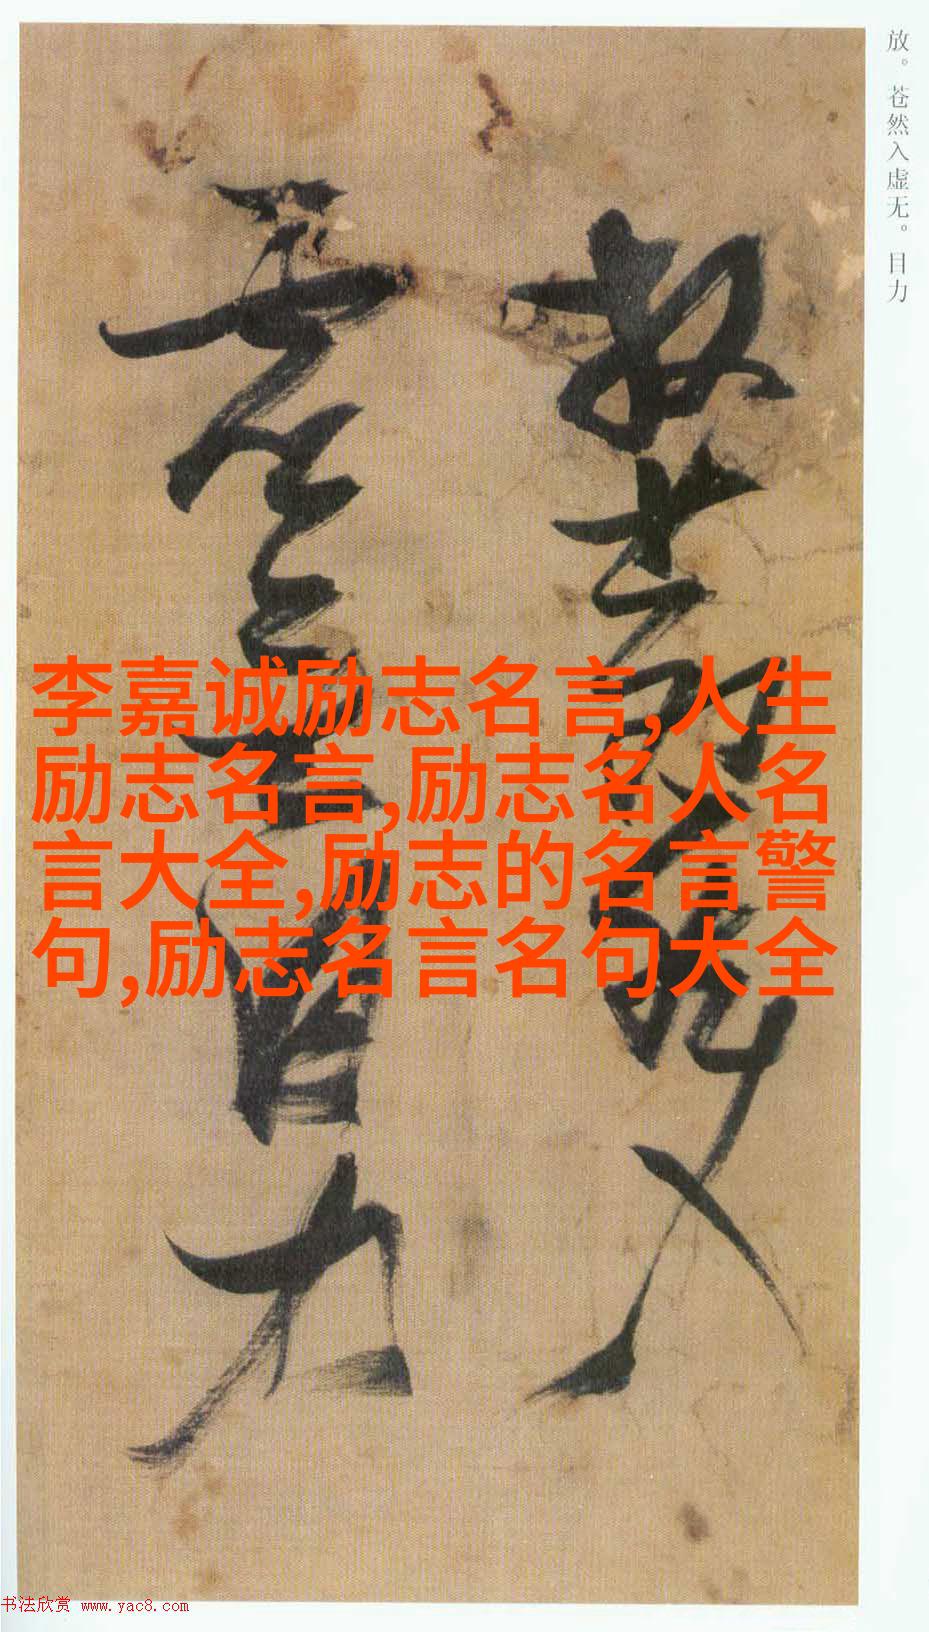 放。苍然入虚无。目力
放苍然入
虚无目力
李嘉诚励志名言,人生
励志名言,励志名人名
言大全,励志的名言警
句,励志名言名句大全
书法欣赏 www.yac8.com